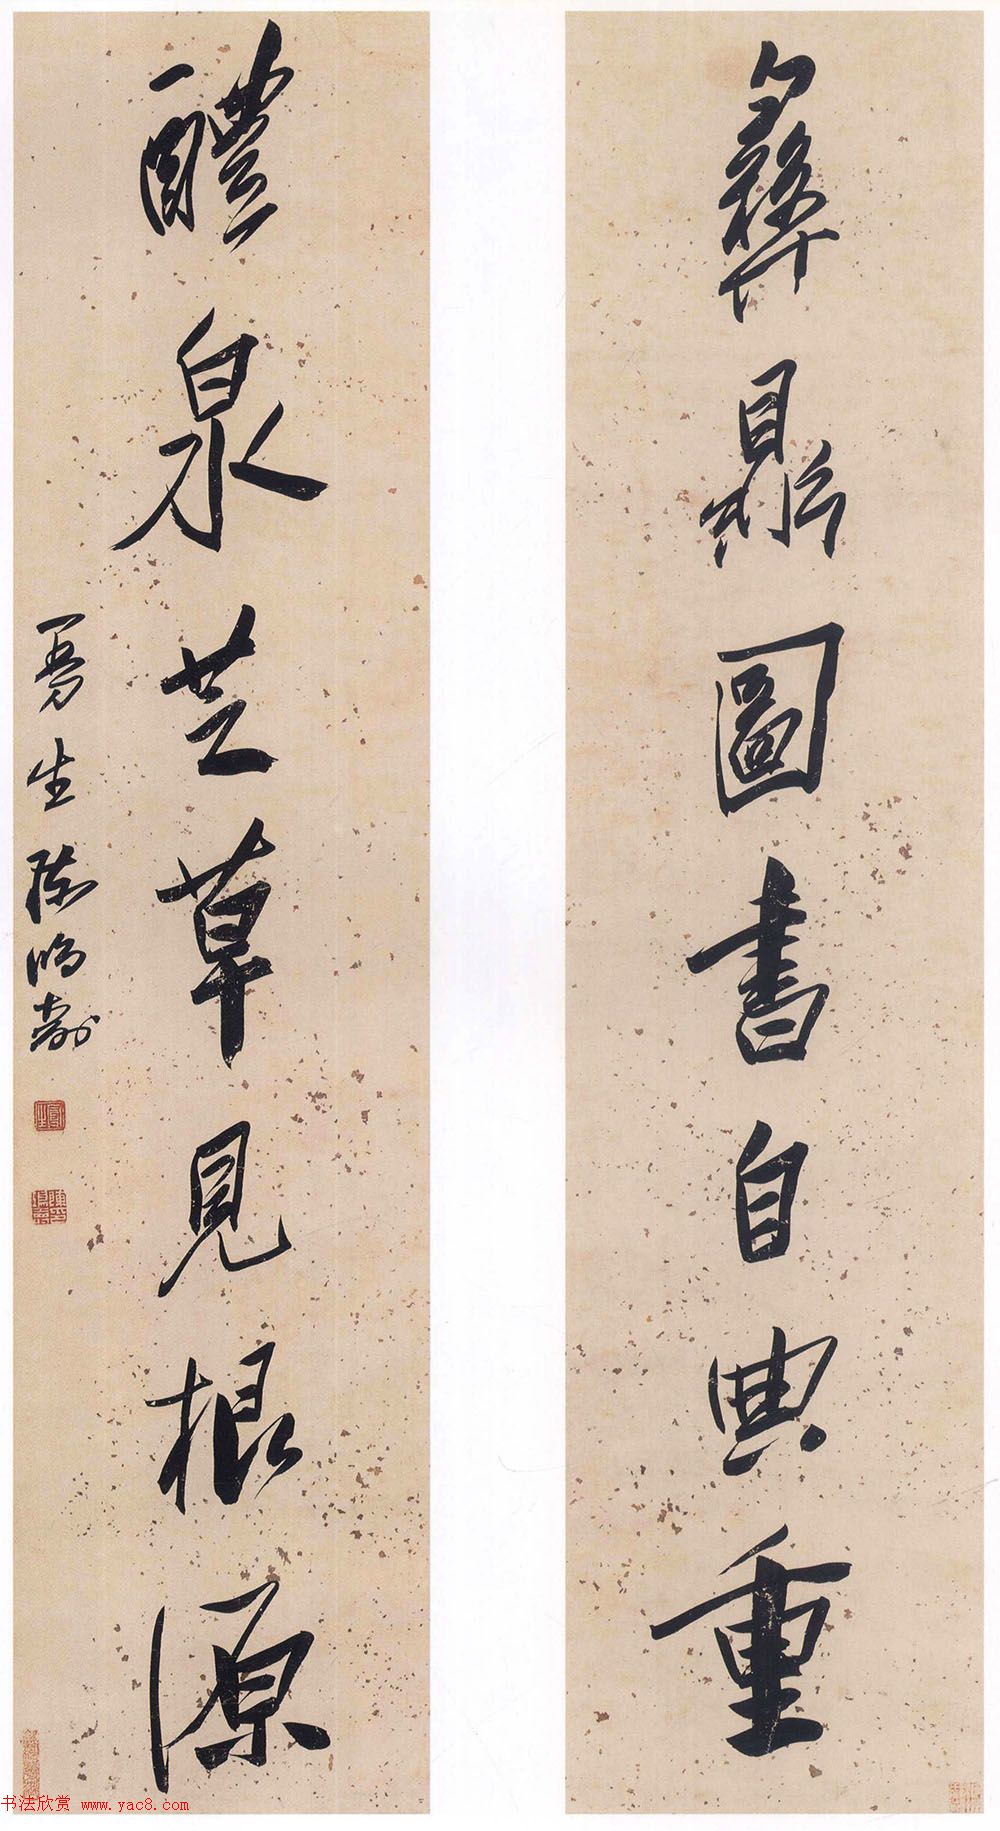 彝鼎圖書自典重
醴泉芝草見根源
曼生陳鴻壽
书法欣赏 www.yac8.com